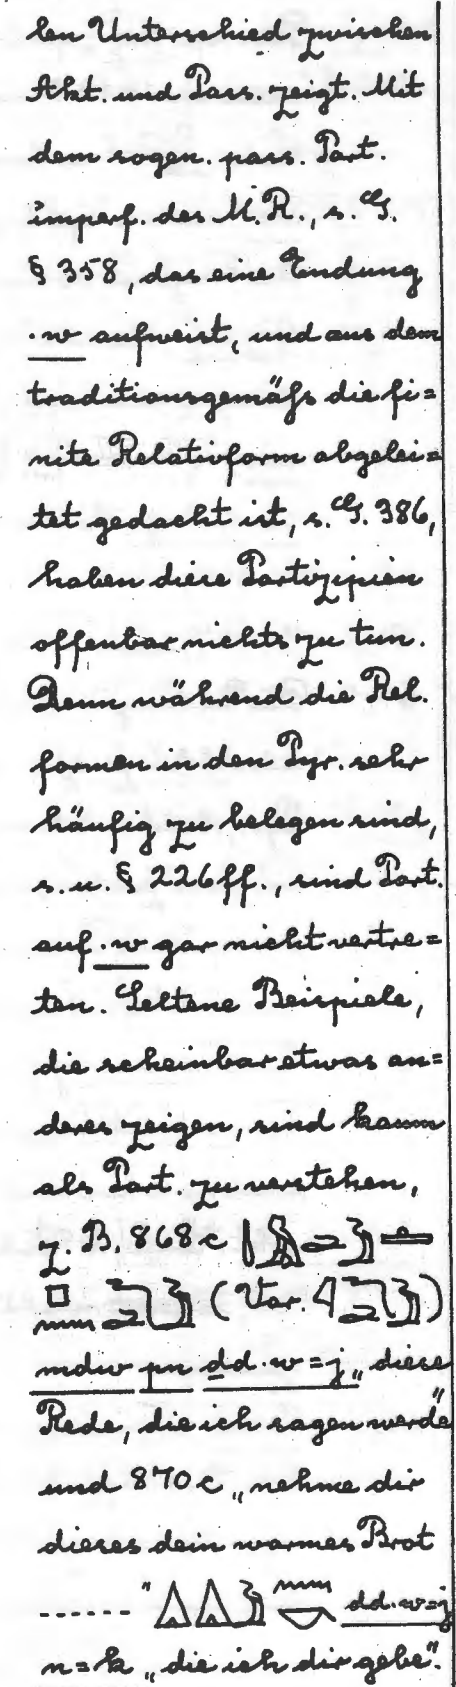 len Unterschied zwischen
Akt. und Pass. zeigt. Mit
dem sogen. pass. Part.
imperf. des M.R., s. G.
§ 358, das eine Endung
.w aufweist, und aus dem
traditionsgemäß die fi=
nite Relativform abgelei=
tet gedacht ist, s. G. 386,
haben diese Partizipien
offenbar nichts zu tun.
Denn während die Rel.
formen in den Pyr. sehr
häufig zu belegen sind,
s. u. § 226ff., sind Part.
auf .w gar nicht vertre=
ten. Seltene Beispiele,
die scheinbar etwas an=
deres zeigen, sind kaum
als Part. zu verstehen,
z. B. 868c
(Var. )
mdw pn ḏd.w=j „diese
Rede, die ich sagen werde"
und 870c „nehme dir
dieses dein warmes Brot
......" dd.w=j
n=k „die ich dir gebe".